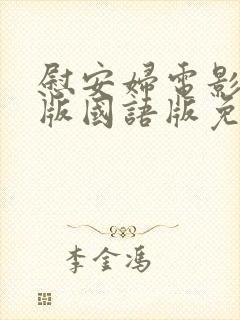 慰安婦電影
版國語版免
李金馮